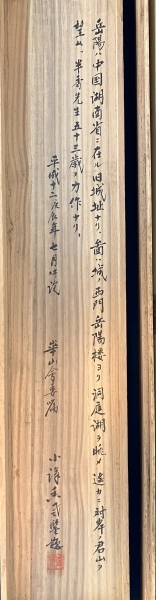 岳陽ハ中国湖南省ニ在ル旧城址ナリ、図ハ城ノ西門岳陽楼ヨリ洞庭湖ヲ眺メ遙カニ対岸ノ君山ヲ
望ム、半香先生五十三歳ノ力作ナリ、
平成十二庚辰年七月
華山会
小
鑒題